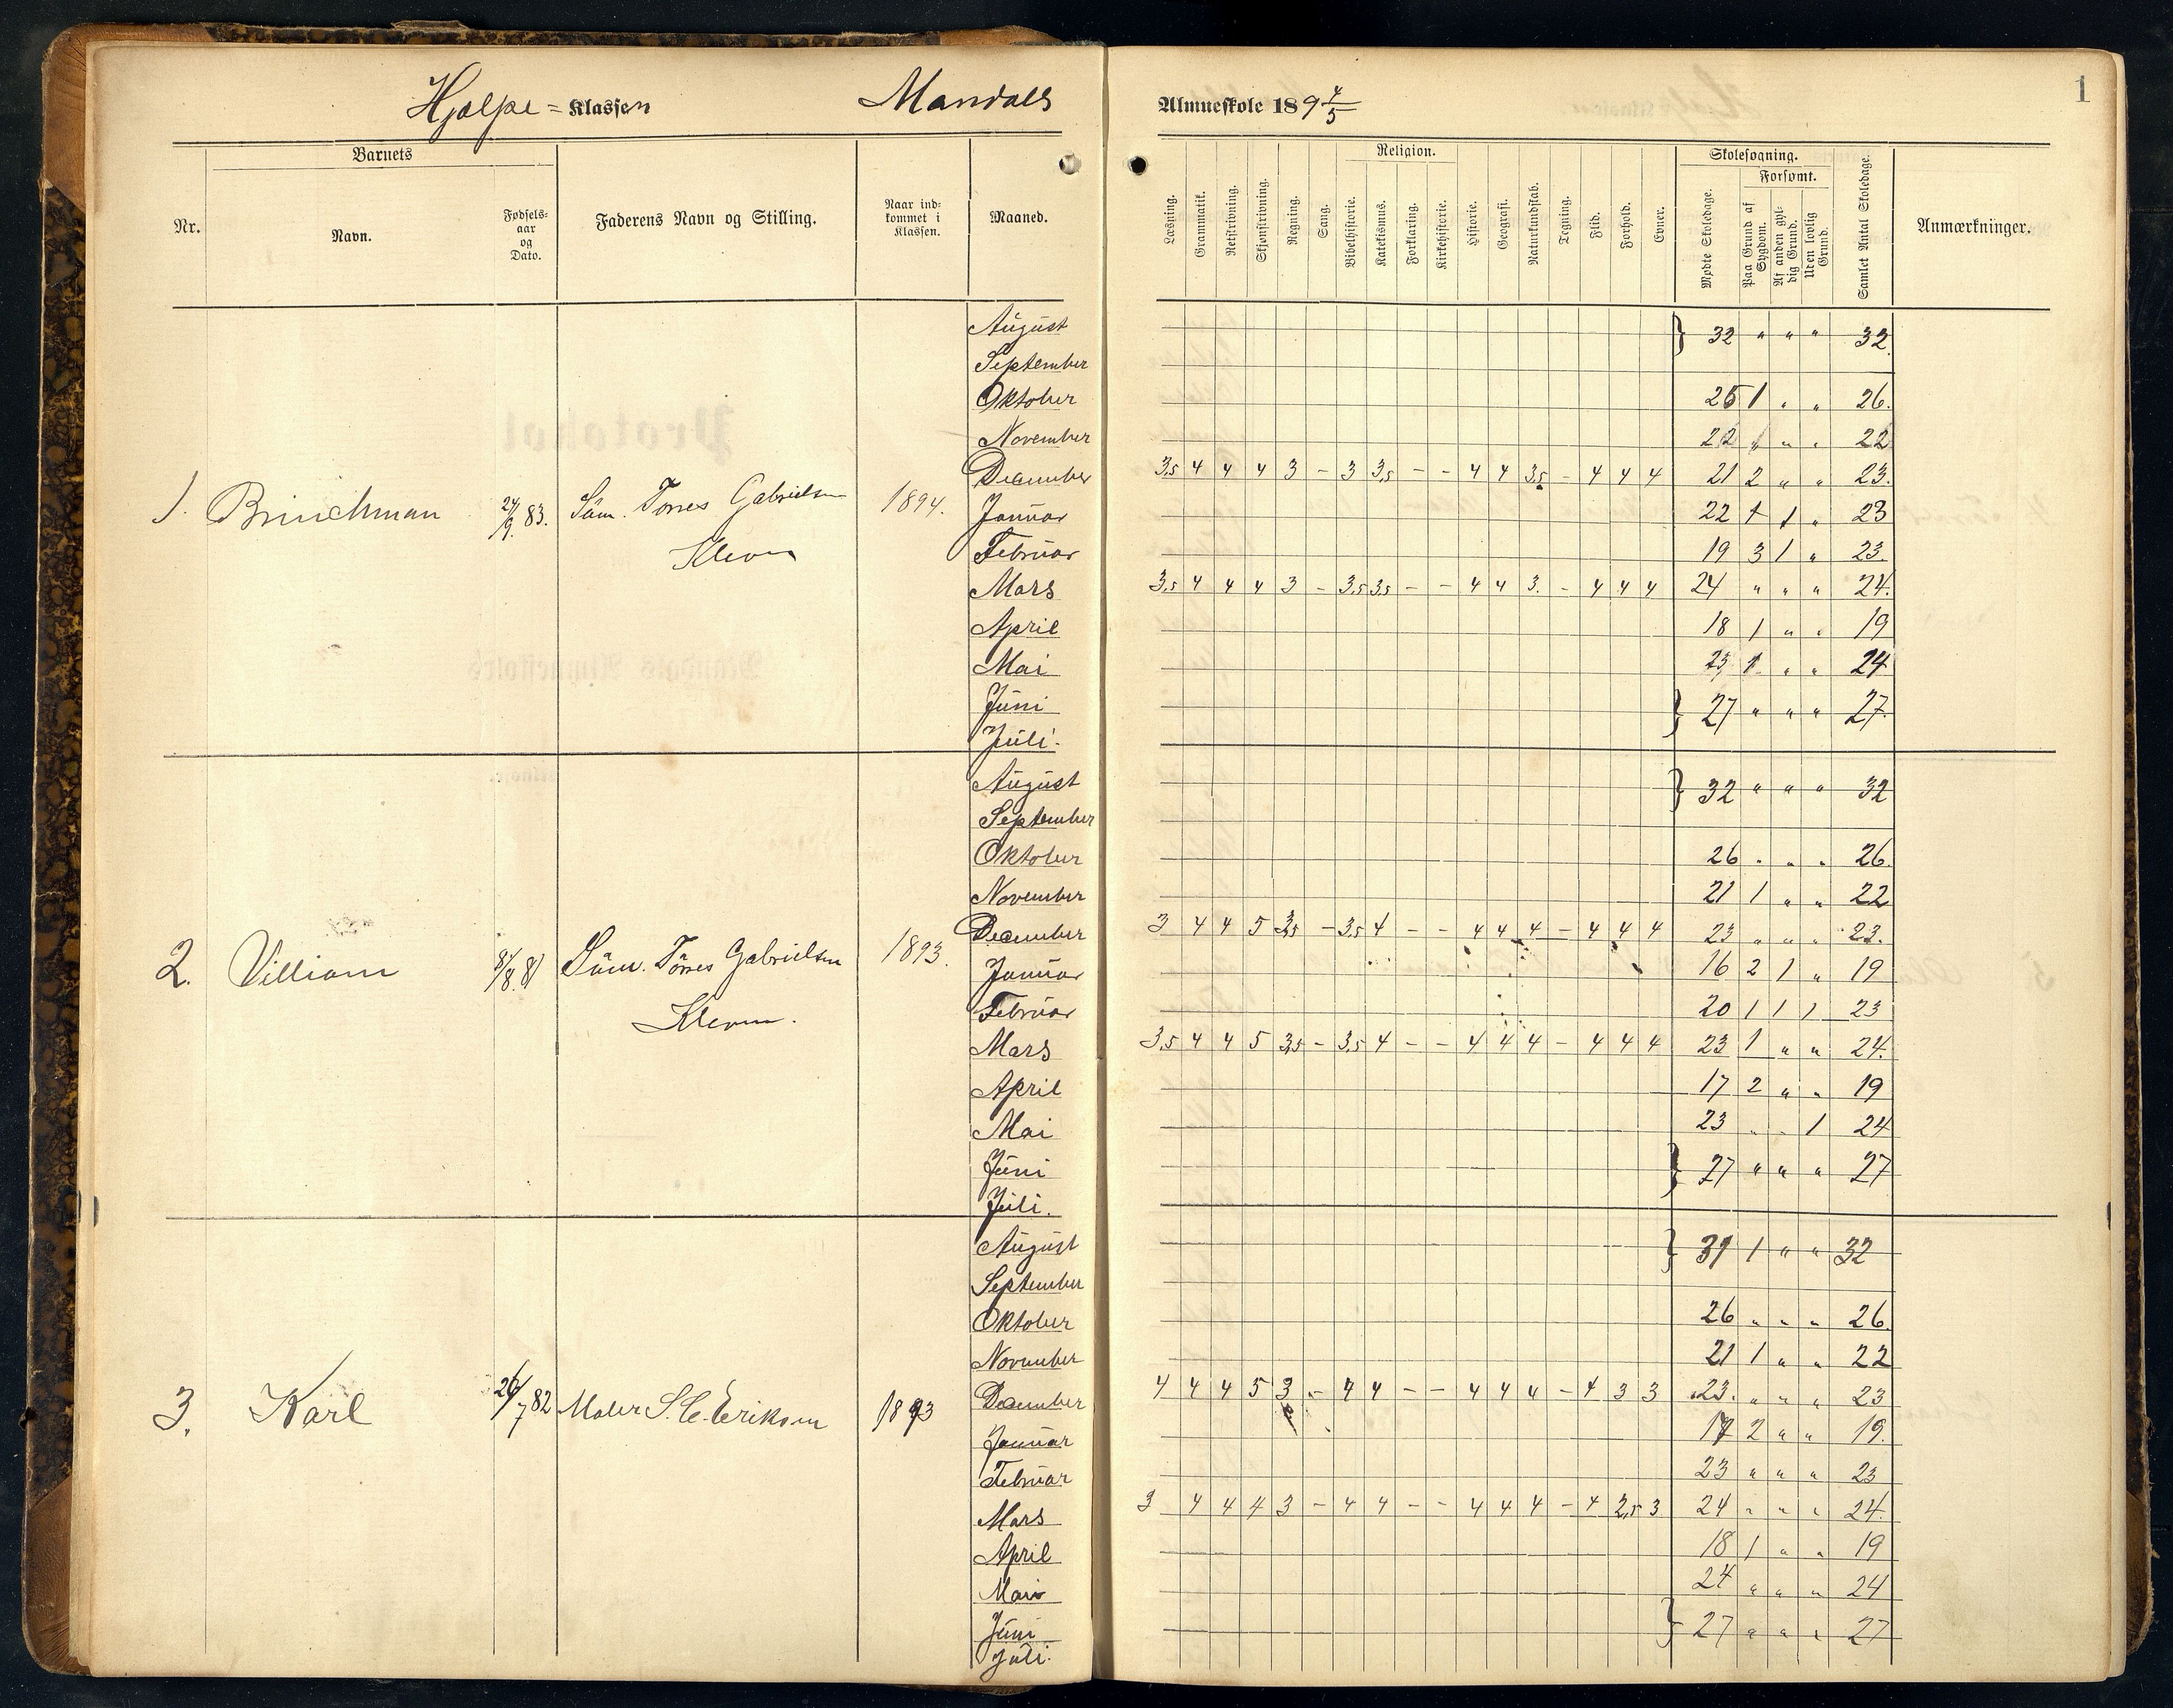 Hjælpe = Klassen Mandals Almueskole 189 4/5
1
Barnets
Nr. Navn. Fødsels-aar og Dato. Faderens Navn og Stilling. Naar ind-kommet i Klassen. Maaned.
Religion.
Læsning. Grammatik. Retskrivning. Skjønskrivning. Regning. Sang. Bibelhistorie. Katekismus. Forklaring. Kirkehistorie. Historie. Geografi. Naturkundskab. Tegning. Flid. Forhold. Evner.
Skolesøgning.
Forsømt.
Mødte Skoledage. Paa Grund af Sygdom. Af anden gyl-dig Grund. Uten lovlig Grund. Samlet Antal Skoledage. Anmærkninger.
August } 32 " " " 32.
September
Oktober 25 1 " " 26.
November 22 " " " 22
December 3,5 4 4 4 3 – 3 3,5 – – 4 4 3,5 – 4 4 4 21 2 " " 23.
1. Brinchman 24/9. 83. Søm. Tørres Gabrielsen 1894.
Kleven
Januar 22 1 " 23
Februar 19 3 1 " 23.
Mars 3,5 4 4 4 3 – 3,5 3,5 – – 4 4 3. – 4 4 4 24 " " " 24.
April 18 1 " " 19
Mai 23 1 " " 24
Juni } 27 " " " 27.
Juli.
August } 32 " " " 32
September
Oktober 26 " " " 26.
November 21 1 " " 22
December 3 4 4 5 3,5 – 3,5 4 – – 4 4 4 – 4 4 4 23 " " " 23.
2. Villiam /8. 81 Søm. Tørres Gabrielsen 1893.
Kleven.
Januar 16 2 1 " 19
Februar 20 1 1 1 23
Mars 3,5 4 4 5 3,5 – 3,5 4 – – 4 4 4 – 4 4 4 23 1 " " 24.
April 17 2 " " 19
Mai 23 " " 1 24
Juni } 27 " " " 27
Juli.
August } 31 1 " " 32
September
Oktober 26 " " " 26.
November 21 1 " " 22
December 4 4 4 5 3 – 4 4 – – 4 4 4 – 4 3 3 23. " " " 23
3. Karl 26/7 82 Maler S. C. Eriksen 1893
Januar 17 2 " " 19.
Februar 23 " " " 23
Mars 3 4 4 4 3 – 4 4 – – 4 4 4 – 4 2,5 3 24 " " " 24.
April 18 1 " " 19
Mai 24 " " " 24
Juni } 27 " " " 27
Juli.